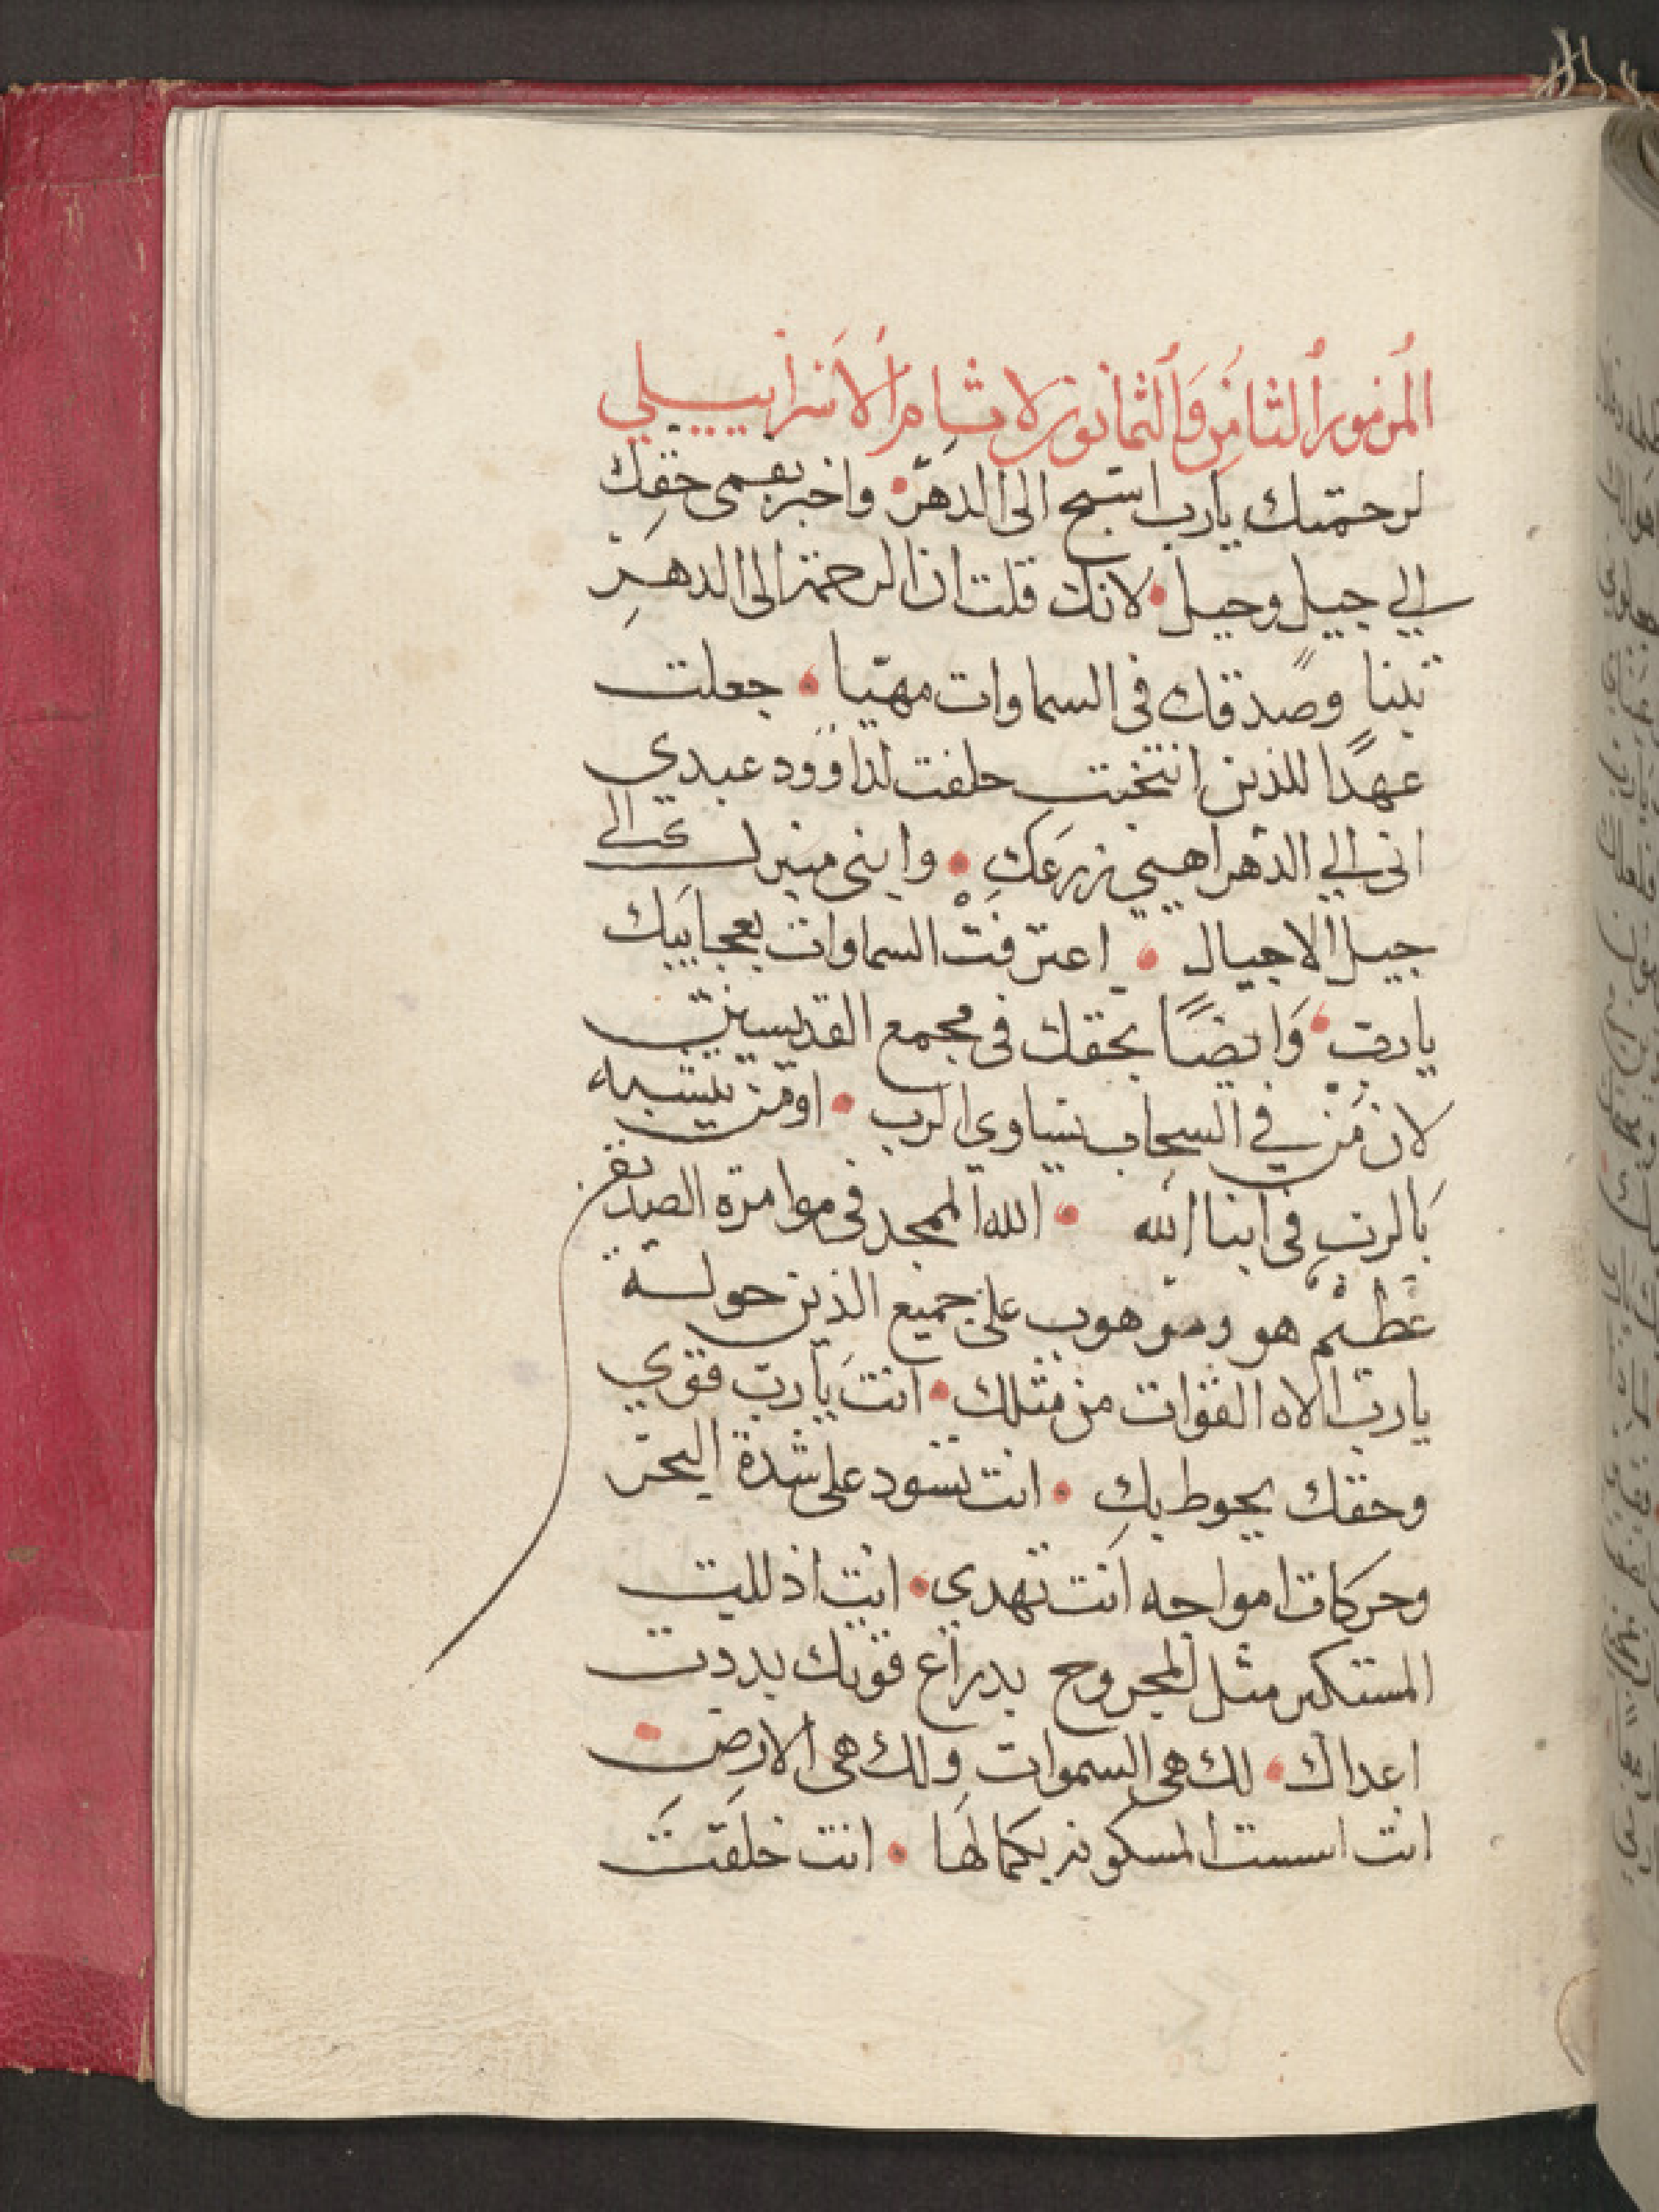 المزمور الثامن والثمانون لاثام الاسراييلي
لرحمتك يارب اسبح الى الدهر • واخبر بفمى حقك
الي جيل وجيل • لانك قلت ان الرحمة الى الدهر
تبنا وصدقك فى السماوات مهيا • جعلت
عهدًا للذين انتخبت حلفت لداوود عبدي
انى الي الدهر اهيي زرعك • وابنى منبرك الي
جيل الاجيال • اعترفت السماوات بعجايبك
يارب • وايضًا بحقك فى مجمع القديسين
لان من في السحاب يساوى الرب • او من يشبه
بالرب فى ابنا الله • الله الممجد فى موامرة الصديقين
عظيم هو ومرهوب على جميع الذين حوله
يارب الاه القوات من مثلك • انت يارب قوي
وحقك يحوط بك • انت تسود على شدة البحر
وحركات امواجه انت تهدي • انت اذلليت
المستكبر مثل المجروح بدراع قوتك بددت
اعداك • لك هى السموات ولك هى الارض •
انت اسست المسكونه بكمالها • انت خلقت